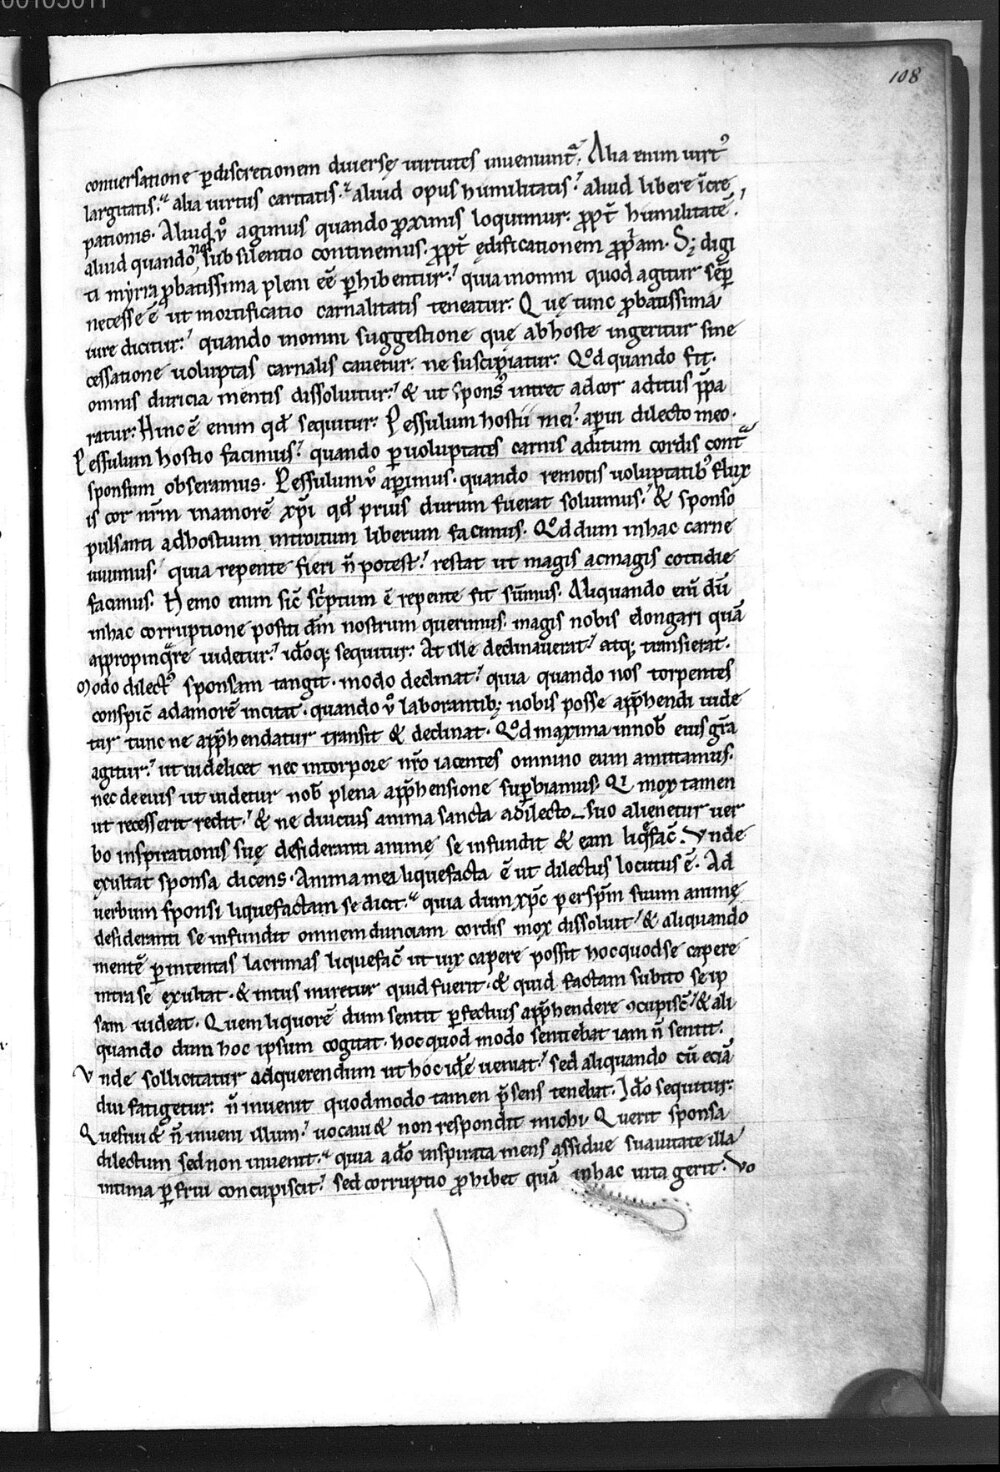 00105011
108
conuersatione ꝑdiscretionem diuersę uirtutes inueniunt᷑. Alia enim uirt᷒
largitatis. alia uirtus caritatis. aliud opus humilitatis. aliud libere īcre
pationis. Aliud ů agimus quando ꝓximis loquimur. ꝓpt̄ humilitatē.
aliud quando nos sub silentio continemus. ꝓpt̄ ędificationem ꝓpriam. Sꝫ digi
ti myrra ꝓbatissima pleni eē ꝑhibentur. quia in omni quod agitur sēꝑ
necesse ē ut mortificatio carnalitatis teneatur. Quę tunc ꝓbatissima
iure dicitur. quando in omni suggestione quę ab hoste ingeritur sine
cessatione uoluptas carnalis cauetur. ne suscipiatur. Qd quando fit.
omnis duricia mentis dissoluitur. & ut spons᷒ intret ad cor aditus p̄pa
ratur. Hinc ē enim qd̄ sequitur. Pessulum hostii mei aꝑui dilecto meo.
Pessulum hostio facimus. quando ꝑ uoluptates carnis aditum cordis cont᷑
sponsum obseramus. Pessulum ů aꝑimus. quando remotis uoluptatib᷒ flux
is cor nr̄m in amorē xp̄i qd̄ prius durum fuerat soluimus. & sponso
pulsanti ad hostium introitum liberum facimus. Qd dum in hac carne
uiuimus. quia repente fieri n̄ potest. restat ut magis ac magis cottidie
faciamus. Nemo enim sic̄ sc̄ptum ē repente fit sūmus. Aliquando eni dū
in hac corruptione positi dn̄m nostrum querimus. magis nobis elongari quā
appropinq̄re uidetur. idōqꝫ sequitur. At ille declinauerat. atqꝫ transierat.
Modo dilect᷒ sponsam tangit. modo declinat. quia quando nos torpentes
conspic̄ ad amorē incitat. quando ů laborantibꝫ nobis posse app̄hendi uide
tur tunc ne app̄hendatur transit & declinat. Qd maxima in nob̄ eius gr̄a
agitur. ut uidelicet nec in torpore nr̄o iacentes omnino eum amittamus.
nec de eius ut uidetur nob̄ plena app̄hensione suꝑbiamus. Qi mox tamen
ut recesserit redit. & ne diucius anima sancta a dilecto suo alienetur uer
bo inspirationis suę desideranti animę se infundit & eam liq̄fac̄. Vnde
exultat sponsa dicens. Anima mea liquefacta ē ut dilectus locutus ē. Ad
uerbum sponsi liquefactam se dicit. quia dum xp̄c per sp̄m suum animę
desideranti se infundit omnem duriciam cordis mox dissoluit. & aliquando
mentē ꝑ intentas lacrimas liquefac̄ ut uix capere possit hoc quod se capere
intra se exultat. & intus miretur quid fuerit. & quid factam subito se ip
sam uideat. Quem liquorē dum sentit ꝑfectius app̄hendere ꝯcupisc̄. & ali
quando dum hoc ipsum cogitat. hoc quod modo sentiebat iam n̄ sentit.
Vnde sollicitatur ad querendum ut hoc idē ueniat. sed aliquando cū eciā
diu fatigetur. n̄ inuenit quod modo tamen p̄sens tenebat. Idō sequitur.
Quesiui & n̄ inueni illum. uocaui & non respondit michi. Querit sponsa
dilectum sed non inuenit. quia a dō inspirata mens assidue suauitate illa
intima ꝑfrui concupiscit. sed corruptio ꝓhibet quā in hac uita gerit. Vo